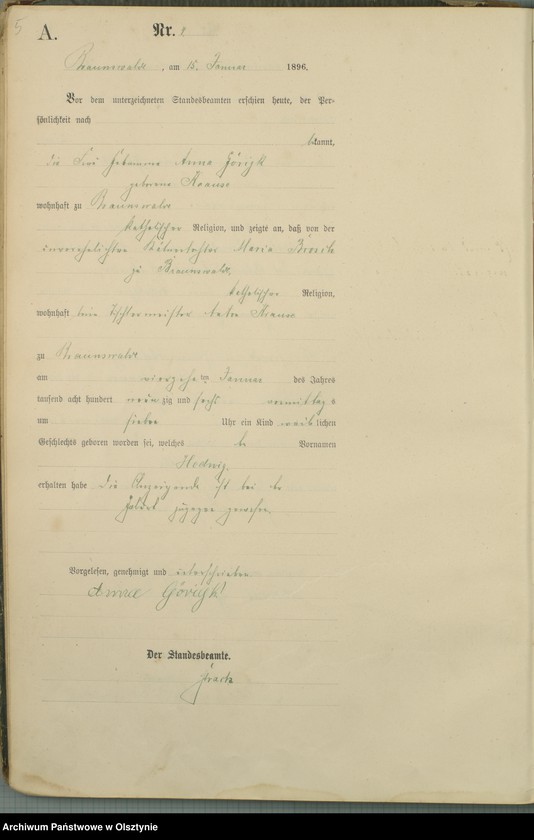 5
A.
Nr.
Braunswalde, am 15. Januar 1896.
Vor dem unterzeichneten Standesbeamten erschien heute, der Per-
sönlichkeit nach
kannt,
die Frau Hebamme Anna Görigk
geborene Krause
wohnhaft zu Braunswalde
katholischer Religion, und zeigte an, daß von der
unverehelichten Maria
zu Braunswalde,
katholischer Religion,
wohnhaft beim Tischlermeister Krause
zu Braunswalde
am vierzehnten Januar des Jahres
tausend acht hundert neun zig und sechs vormittags
um sieben Uhr ein Kind weiblichen
Geschlechts geboren worden sei, welches Vornamen
Hedwig
erhalten habe die Anzeigende ist bei der
Geburt zugegen gewesen.
Vorgelesen, genehmigt und unterschrieben
Anna Görigk
Der Standesbeamte.